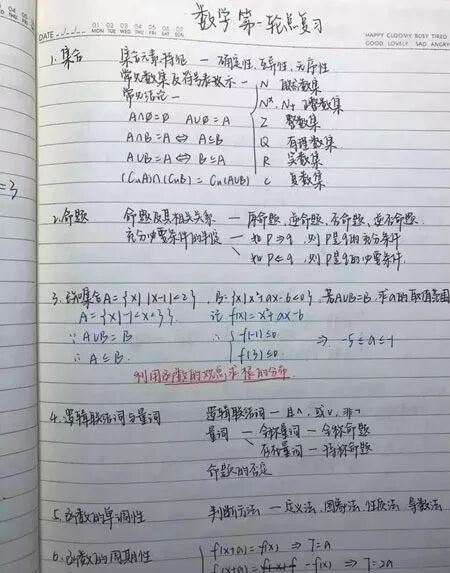 数学第一轮总复习
DATE
01 02 03 04 05 06 07
MON TUE WED THU FRI SAT SUN
HAPPY GLOOMY BUSY TIRED
GOOD LOVELY SAD ANGRY
1. 集合 集合元素特征 — 确定性, 互异性, 无序性
常见数集及符号表示 — N 自然数集
常见结论 — N*, N+ 正整数集
A∩∅=∅ A∪∅=A Z 整数集
A∩B=A ⇔ A⊆B Q 有理数集
A∪B=A ⇔ B⊆A R 实数集
(CuA)∩(CuB)=Cu(A∪B) C 复数集
=3
2. 命题 命题及其相关关系 — 原命题, 逆命题, 否命题, 逆否命题.
充分必要条件的判定 — 如 P⇒q, 则 P是q的充分条件
如 P⇐q, 则 P是q的必要条件.
3. 集合A={x||x-1|<2}, B={x|x²+ax-b<0}, 若A∪B=B, 求a的取值范围
A={x|-1<x<3} 记 f(x)=x²+ax-b
∵ A∪B=B ∴ f(-1)≤0 ⇒ -5≤a≤-1
∴ A⊆B f(3)≤0
利用函数的观点求根的分布
4. 逻辑联结词与量词 逻辑联结词 — 且∧, 或∨, 非¬
量词 — 全称量词 — 全称命题
存在量词 — 特称命题
命题的否定
5. 函数的单调性 判断方法 — 定义法, 图象法, 性质法, 导数法
6. 函数的周期性 f(x+a)=f(x) ⇒ T=a
f(x+a)= -f(x) ⇒ T=2a